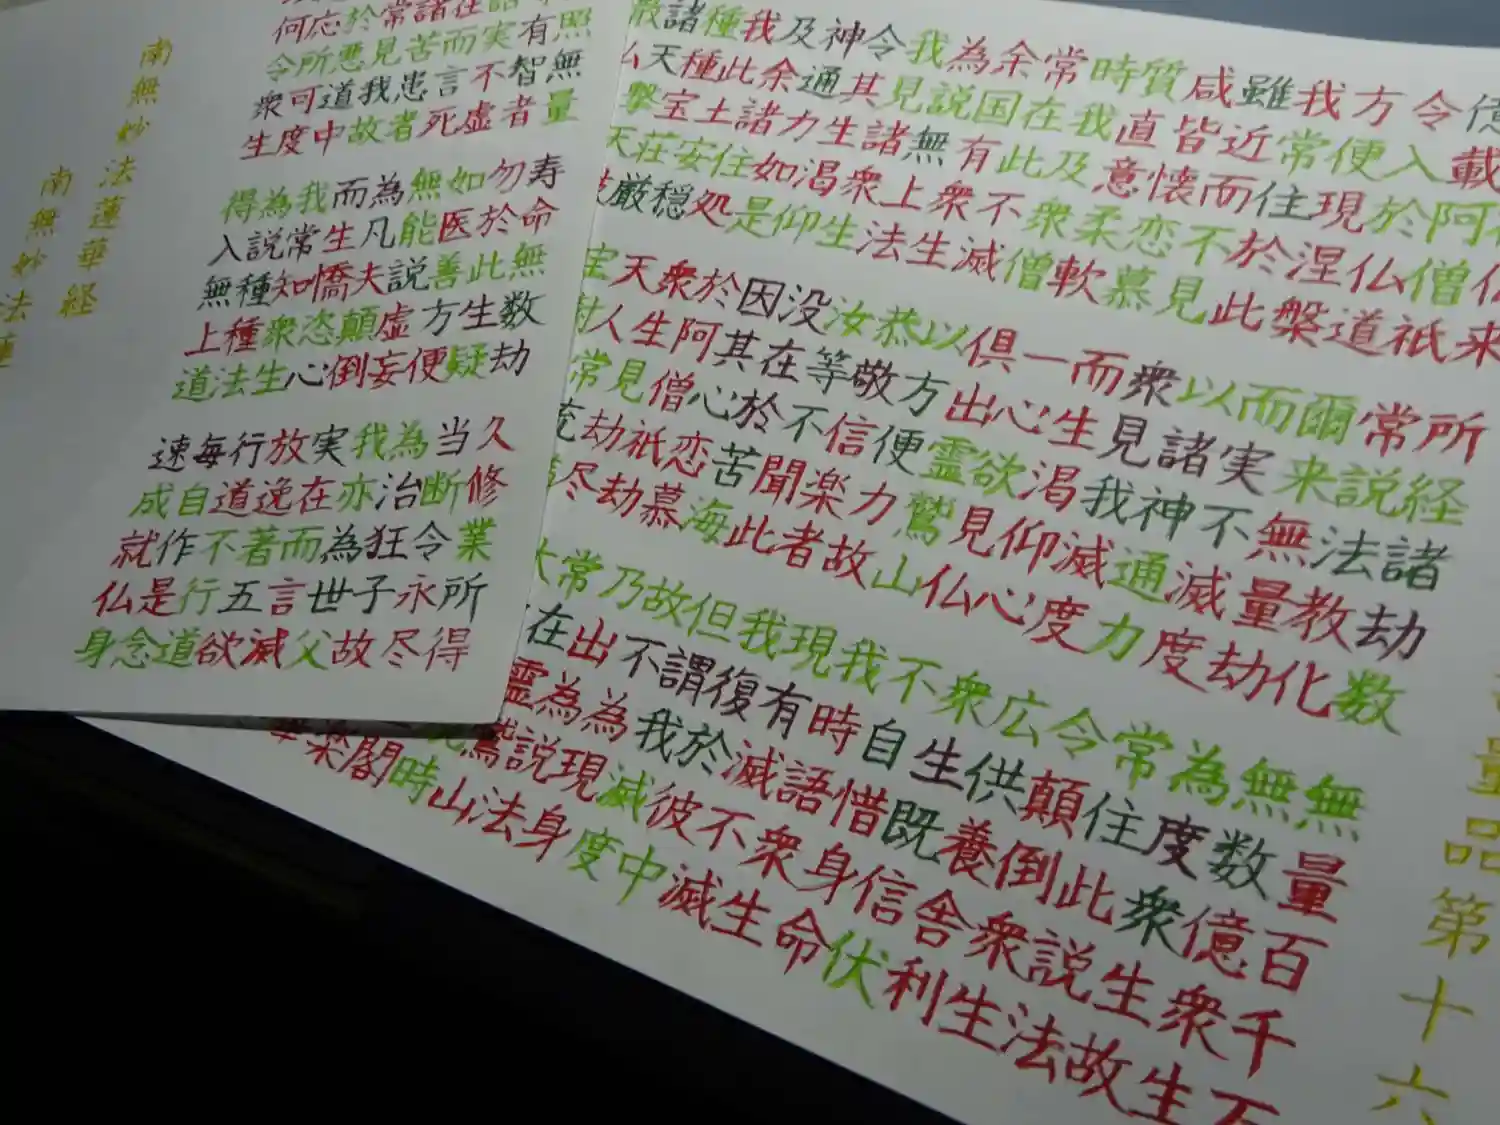 量品第十六
仏来
所経諸劫数
無量百千万
億載阿僧祇
常説法教化
無数億衆生
令入於仏道
爾来無量劫
為度衆生故
方便現涅槃
而実不滅度
常住此説法
我常住於此
以諸神通力
令顛倒衆生
雖近而不見
衆見我滅度
広供養舎利
咸皆懐恋慕
而生渇仰心
衆生既信伏
質直意柔軟
一心欲見仏
不自惜身命
時我及衆僧
俱出霊鷲山
我時語衆生
常在此不滅
以方便力故
現有滅不滅
余国有衆生
恭敬信楽者
我復於彼中
為説無上法
汝等不聞此
但謂我滅度
我見諸衆生
没在於苦海
故不為現身
令其生渇仰
因其心恋慕
乃出為説法
神通力如是
於阿僧祇劫
常在霊鷲山
及余諸住処
衆生見劫尽
大火所焼時
我此土安穏
天人常充満
諸堂閣
種種宝荘厳
宝
諸天撃天
照無量
寿命無数劫
久修業所得
有智者
勿於此生疑
当断令永尽
語実不虚
如医善方便
為治狂子故
在而言死
無能説虚妄
我亦為世父
諸苦患者
為凡夫顛倒
実在而言滅
常見我故
而生憍恣心
放逸著五欲
於悪道中
我常知衆生
行道不行道
応所可度
為説種種法
毎自作是念
何令衆生
得入無上道
速成就仏身
南無妙法蓮華経
南無妙法蓮